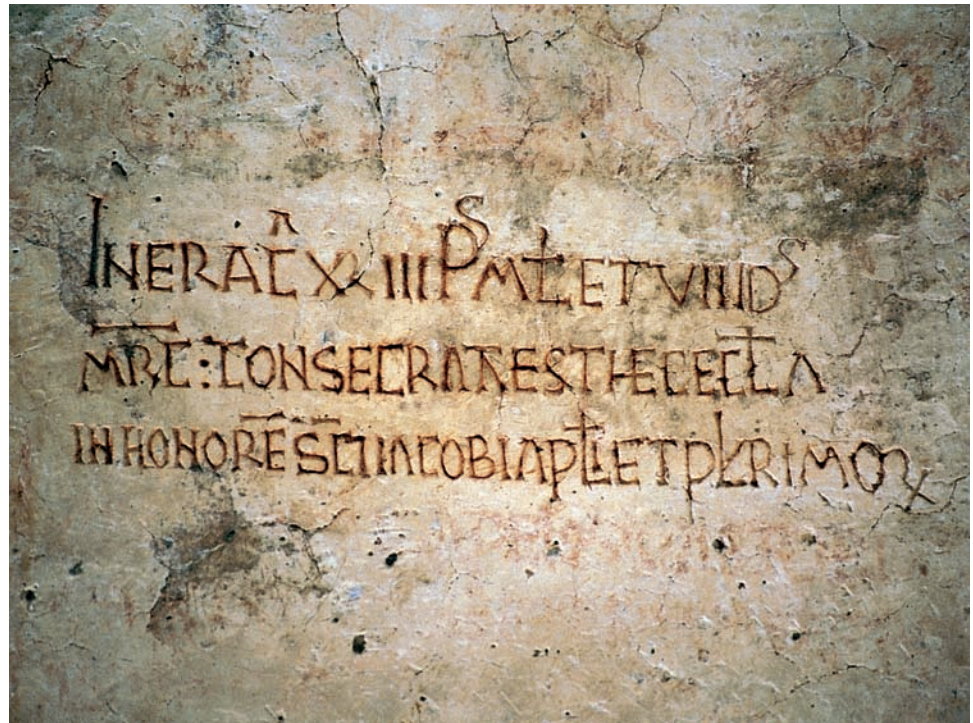 IN ERA C̄ᴬ XLIII Pˢ ML̵ ET VIII Dˢ
M̅R̅C̅ : CONSECRAT EST HEC ECCL̵A
IN HONORĒ S̅C̅I IACOBI APL̵I ET PLRIMOꝝ